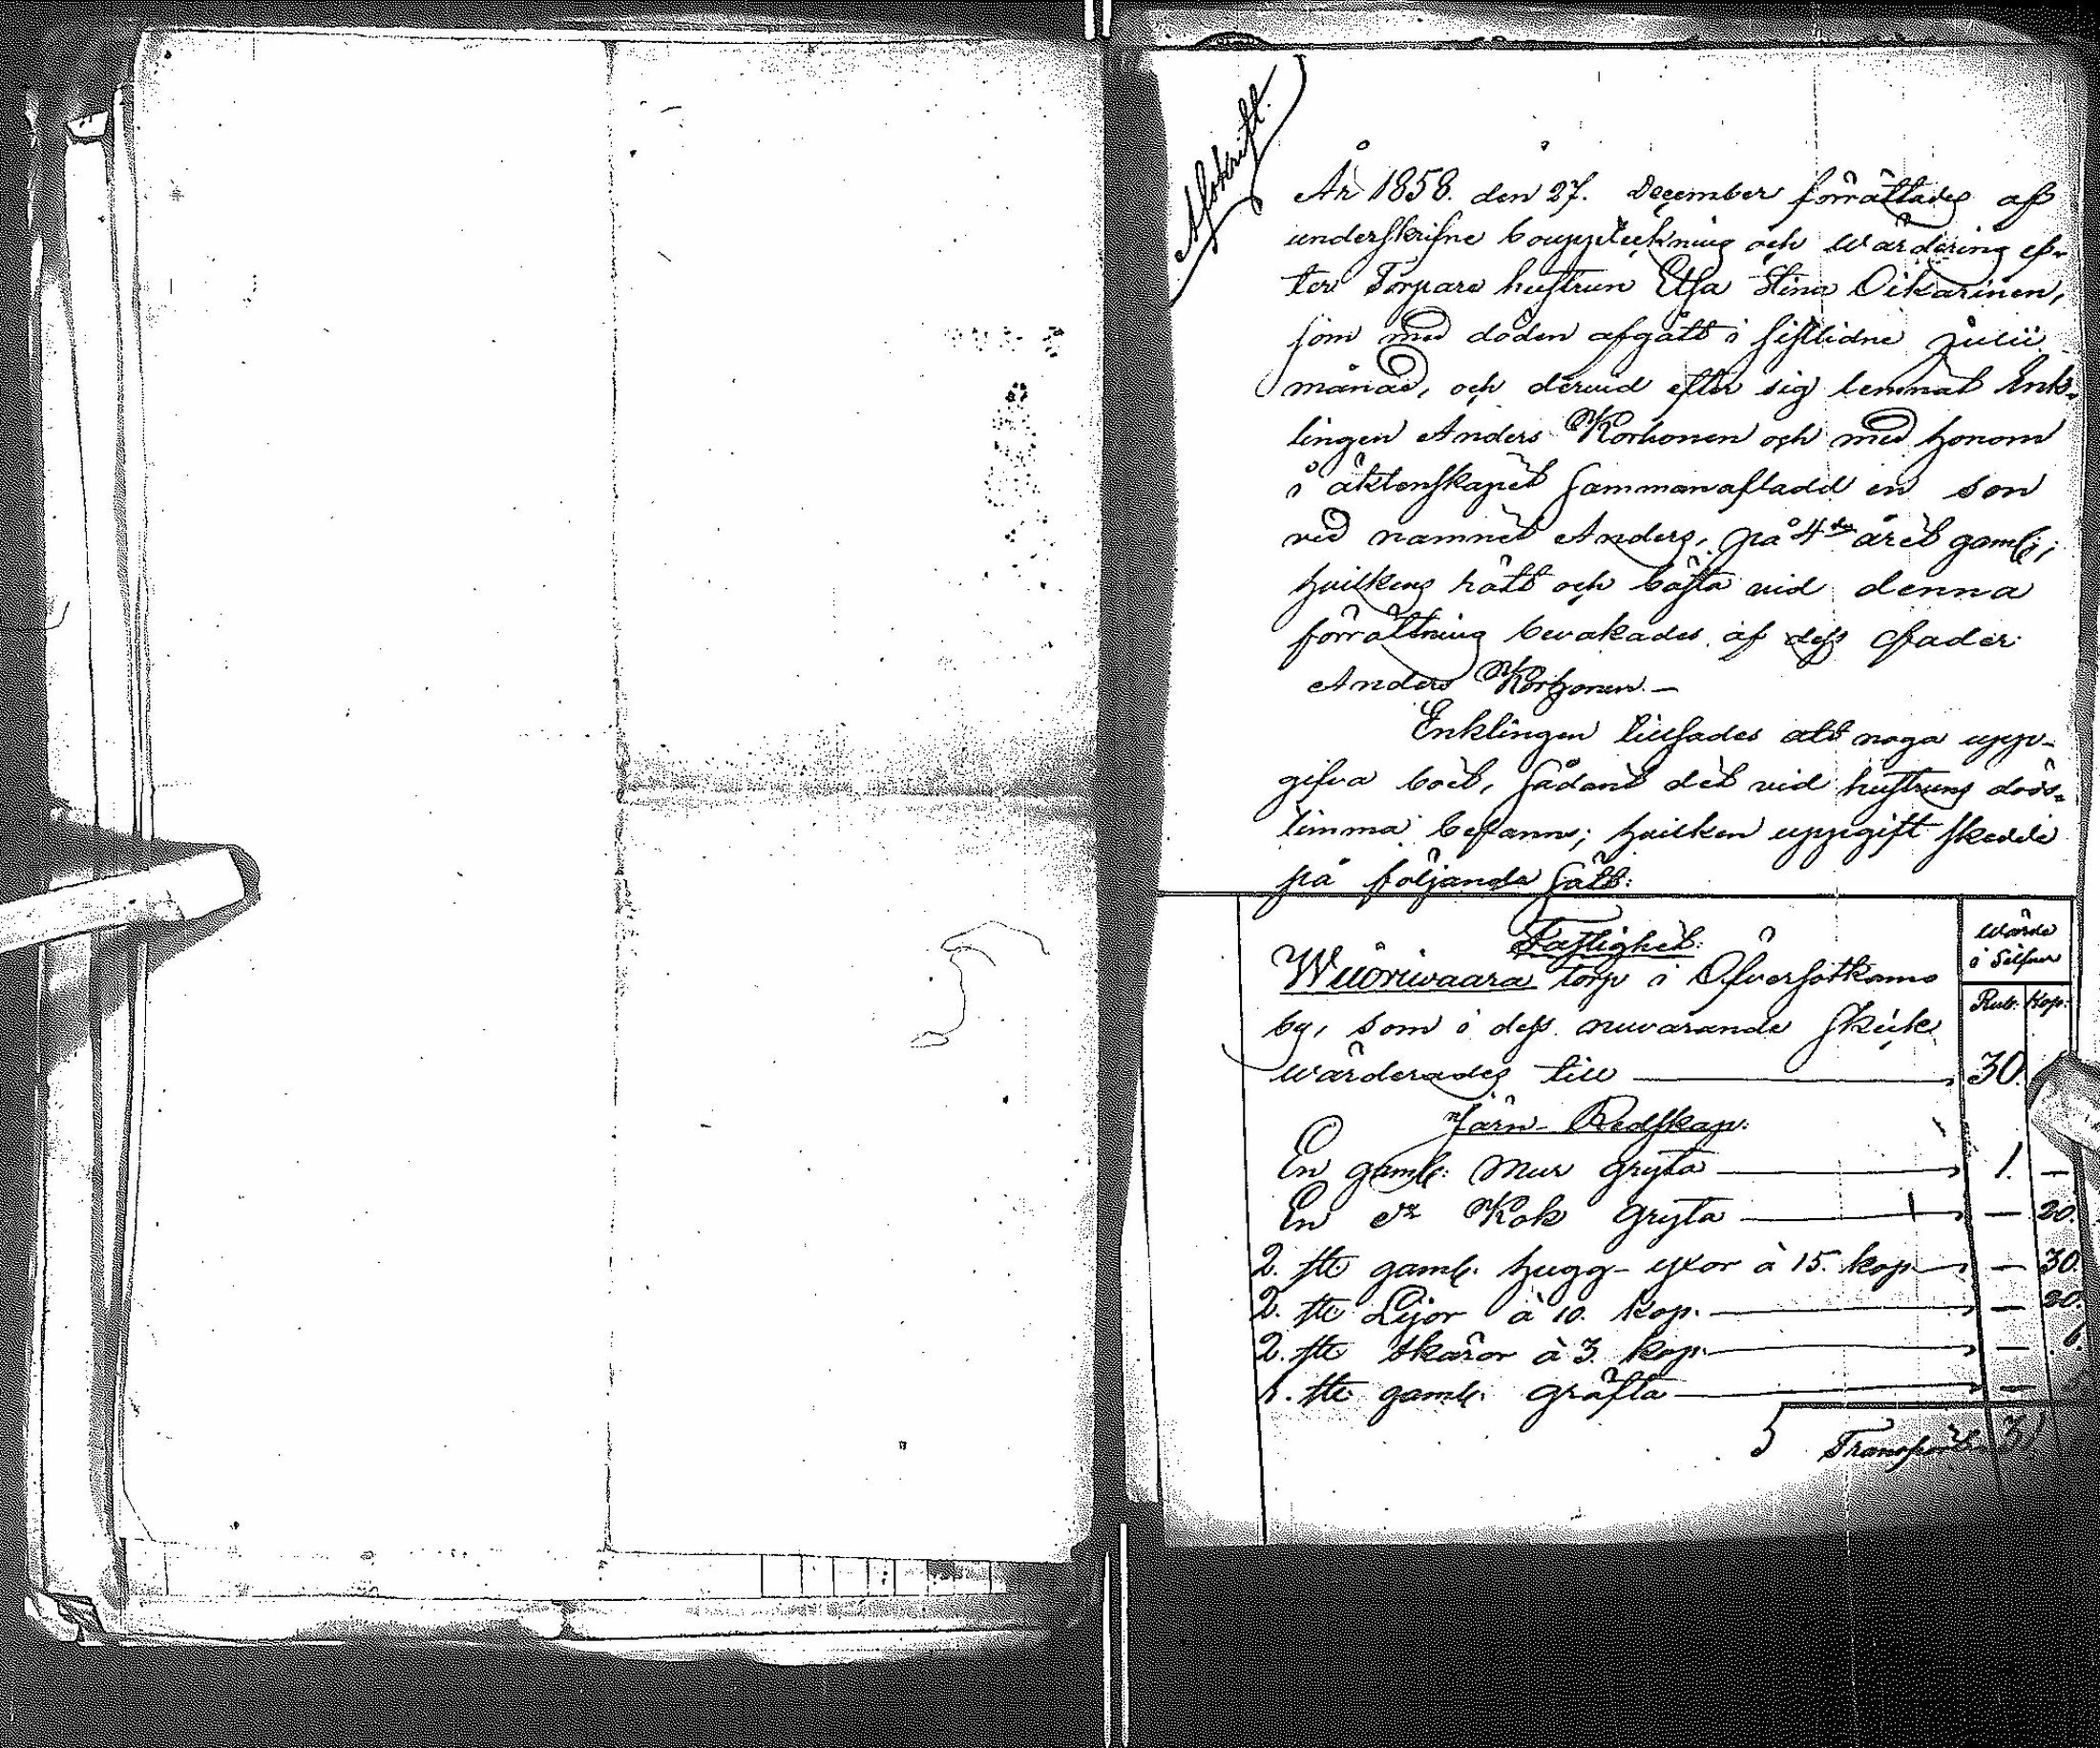 Afskrift.
År 1858. den 27. December förrättades af
underskrifne bouppteckning och wärdering ef-
ter Torpare hustrun Elsa Stina Oikarinen,
som med döden afgått i sistlidne Julii
månad, och dervid efter sig lemnat Enk-
lingen Anders Korhonen och med honom
i äktenskapet sammanafladd en son
vid namnet Anders, på 4de året gaml;
hvilkens rätt och bästa vid denna
förrättning bevakades af dess fader
Anders Korhonen. —
Enklingen tillsades att noga upp-
gifva boet, sådant det vid hustruns döds-
timma befanns; hvilken uppgift skedde
på följande sätt:
Wärde
i Silfver
Rub. Kop.
Fastighet:
Wuorivaara torp i Öfversotkamo
by, som i dess nuvarande skick
wärderades till — 30.
Järn-Redskap.
En gaml. Mur gryta — 1. —
En dito Kok gryta — — 20.
2. st. gaml. hugg-yxor à 15. kop — — 30.
2. st. Lijor à 10. kop. — — 20.
2. st. Skäror à 3. kop. — — 6.
1. st. gaml. gräfta — —
Transport 31